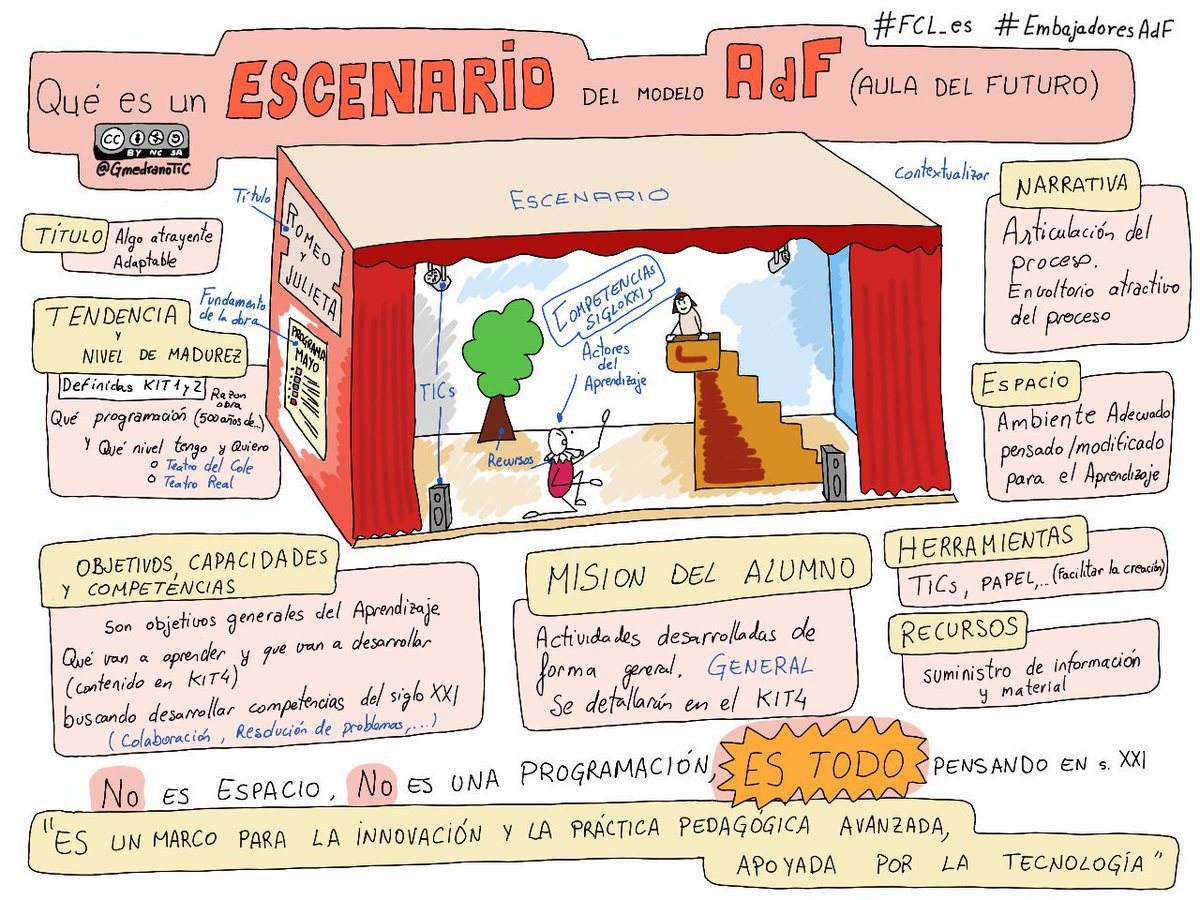 #FCL_es #EmbajadoresAdF
Qué es un ESCENARIO DEL MODELO AdF (AULA DEL FUTURO)
CC BY NC SA
@GmedranoTiC
Título
ROMEO
Y
JULIETA
ESCENARIO
contextualizar
TÍTULO
Algo atrayente
Adaptable
TENDENCIA
Y
NIVEL DE MADUREZ
Definidas KIT 1 y 2
Razon
obra
Qué programación (500 años de...)
y Qué nivel tengo y Quiero
Teatro del Cole
Teatro Real
Fundamento
de la obra
PROGRAMA
MAYO
TICs
Recursos
COMPETENCIAS
SIGLO XXI
Actores
del
Aprendizaje
NARRATIVA
Articulación del
proceso.
Envoltorio atractivo
del proceso
ESPACIO
Ambiente Adecuado
pensado/modificado
para el Aprendizaje
OBJETIVOS, CAPACIDADES
Y COMPETÉNCIAS
Son objetivos generales del Aprendizaje
Qué van a aprender y que van a desarrollar
(contenido en KIT4)
buscando desarrollar competencias del siglo XXI
(Colaboración, Resolución de problemas,...)
MISION DEL ALUMNO
Actividades desarrolladas de
forma general. GENERAL
Se detallarán en el KIT4
HERRAMIENTAS
TICs, PAPEL,... (Facilitar la creación)
RECURSOS
suministro de información
y material
NO ES ESPACIO, NO ES UNA PROGRAMACIÓN, ES TODO PENSANDO EN s. XXI
"ES UN MARCO PARA LA INNOVACIÓN Y LA PRÁCTICA PEDAGÓGICA AVANZADA,
APOYADA POR LA TECNOLOGÍA"